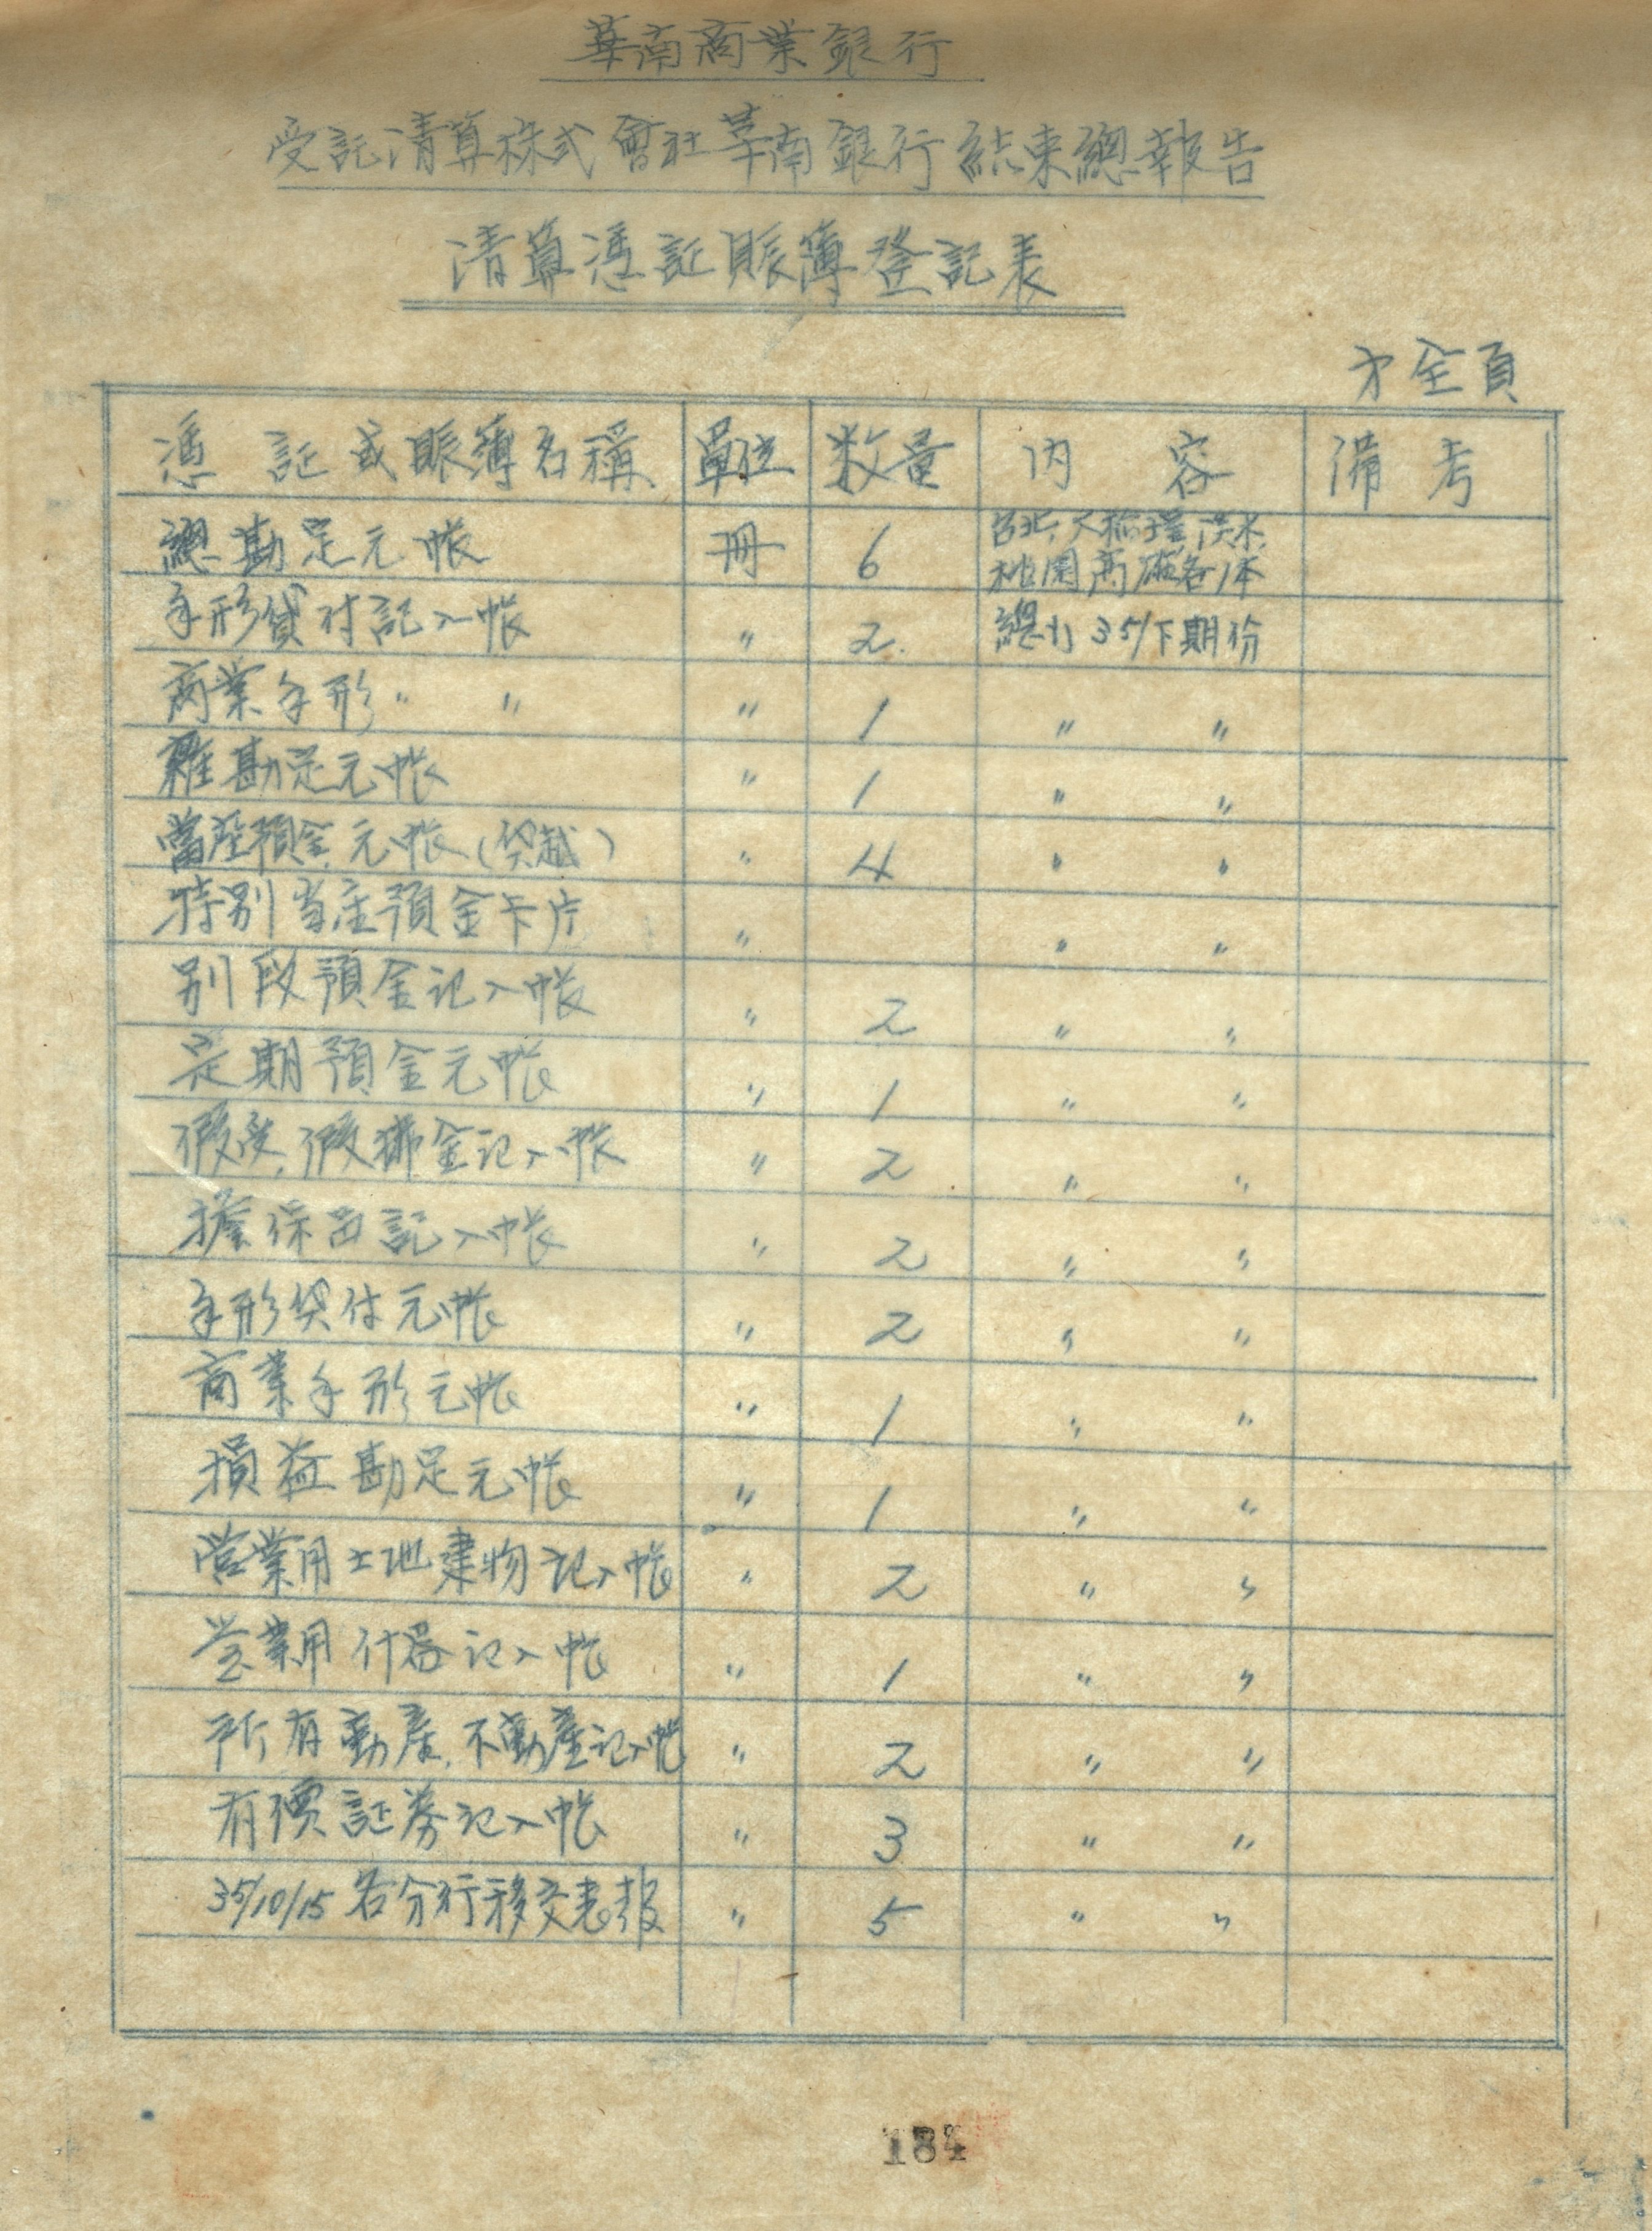 華南商業銀行
受託清算株式會社華南銀行結束總報告
清算憑証賬簿登記表
才全頁
憑証或賬簿名稱 單位 数量 内容 備考
總勘定元帳 冊 6 台北、大稲埕、淡水、
桃園、高雄各1本
手形貸付記入帳 〃 2. 總行 35/下期份
商業手形〃 〃 〃 1 〃 〃
雜勘定元帳 〃 1 〃 〃
當座預金元帳(貸越) 〃 4 〃 〃
特別当座預金卡片 〃 〃 〃
別段預金記入帳 〃 2 〃 〃
定期預金元帳 〃 1 〃 〃
假受、假拂金記入帳 〃 2 〃 〃
擔保品記入帳 〃 2 〃 〃
手形貸付元帳 〃 2 〃 〃
商業手形元帳 〃 1 〃 〃
損益勘定元帳 〃 1 〃 〃
営業用土地建物記入帳 〃 2 〃 〃
営業用什器記入帳 〃 1 〃 〃
所有動産、不動産記入帳 〃 2 〃 〃
有價証券記入帳 〃 3 〃 〃
35/10/15 各分行移交表報 〃 5 〃 〃
184